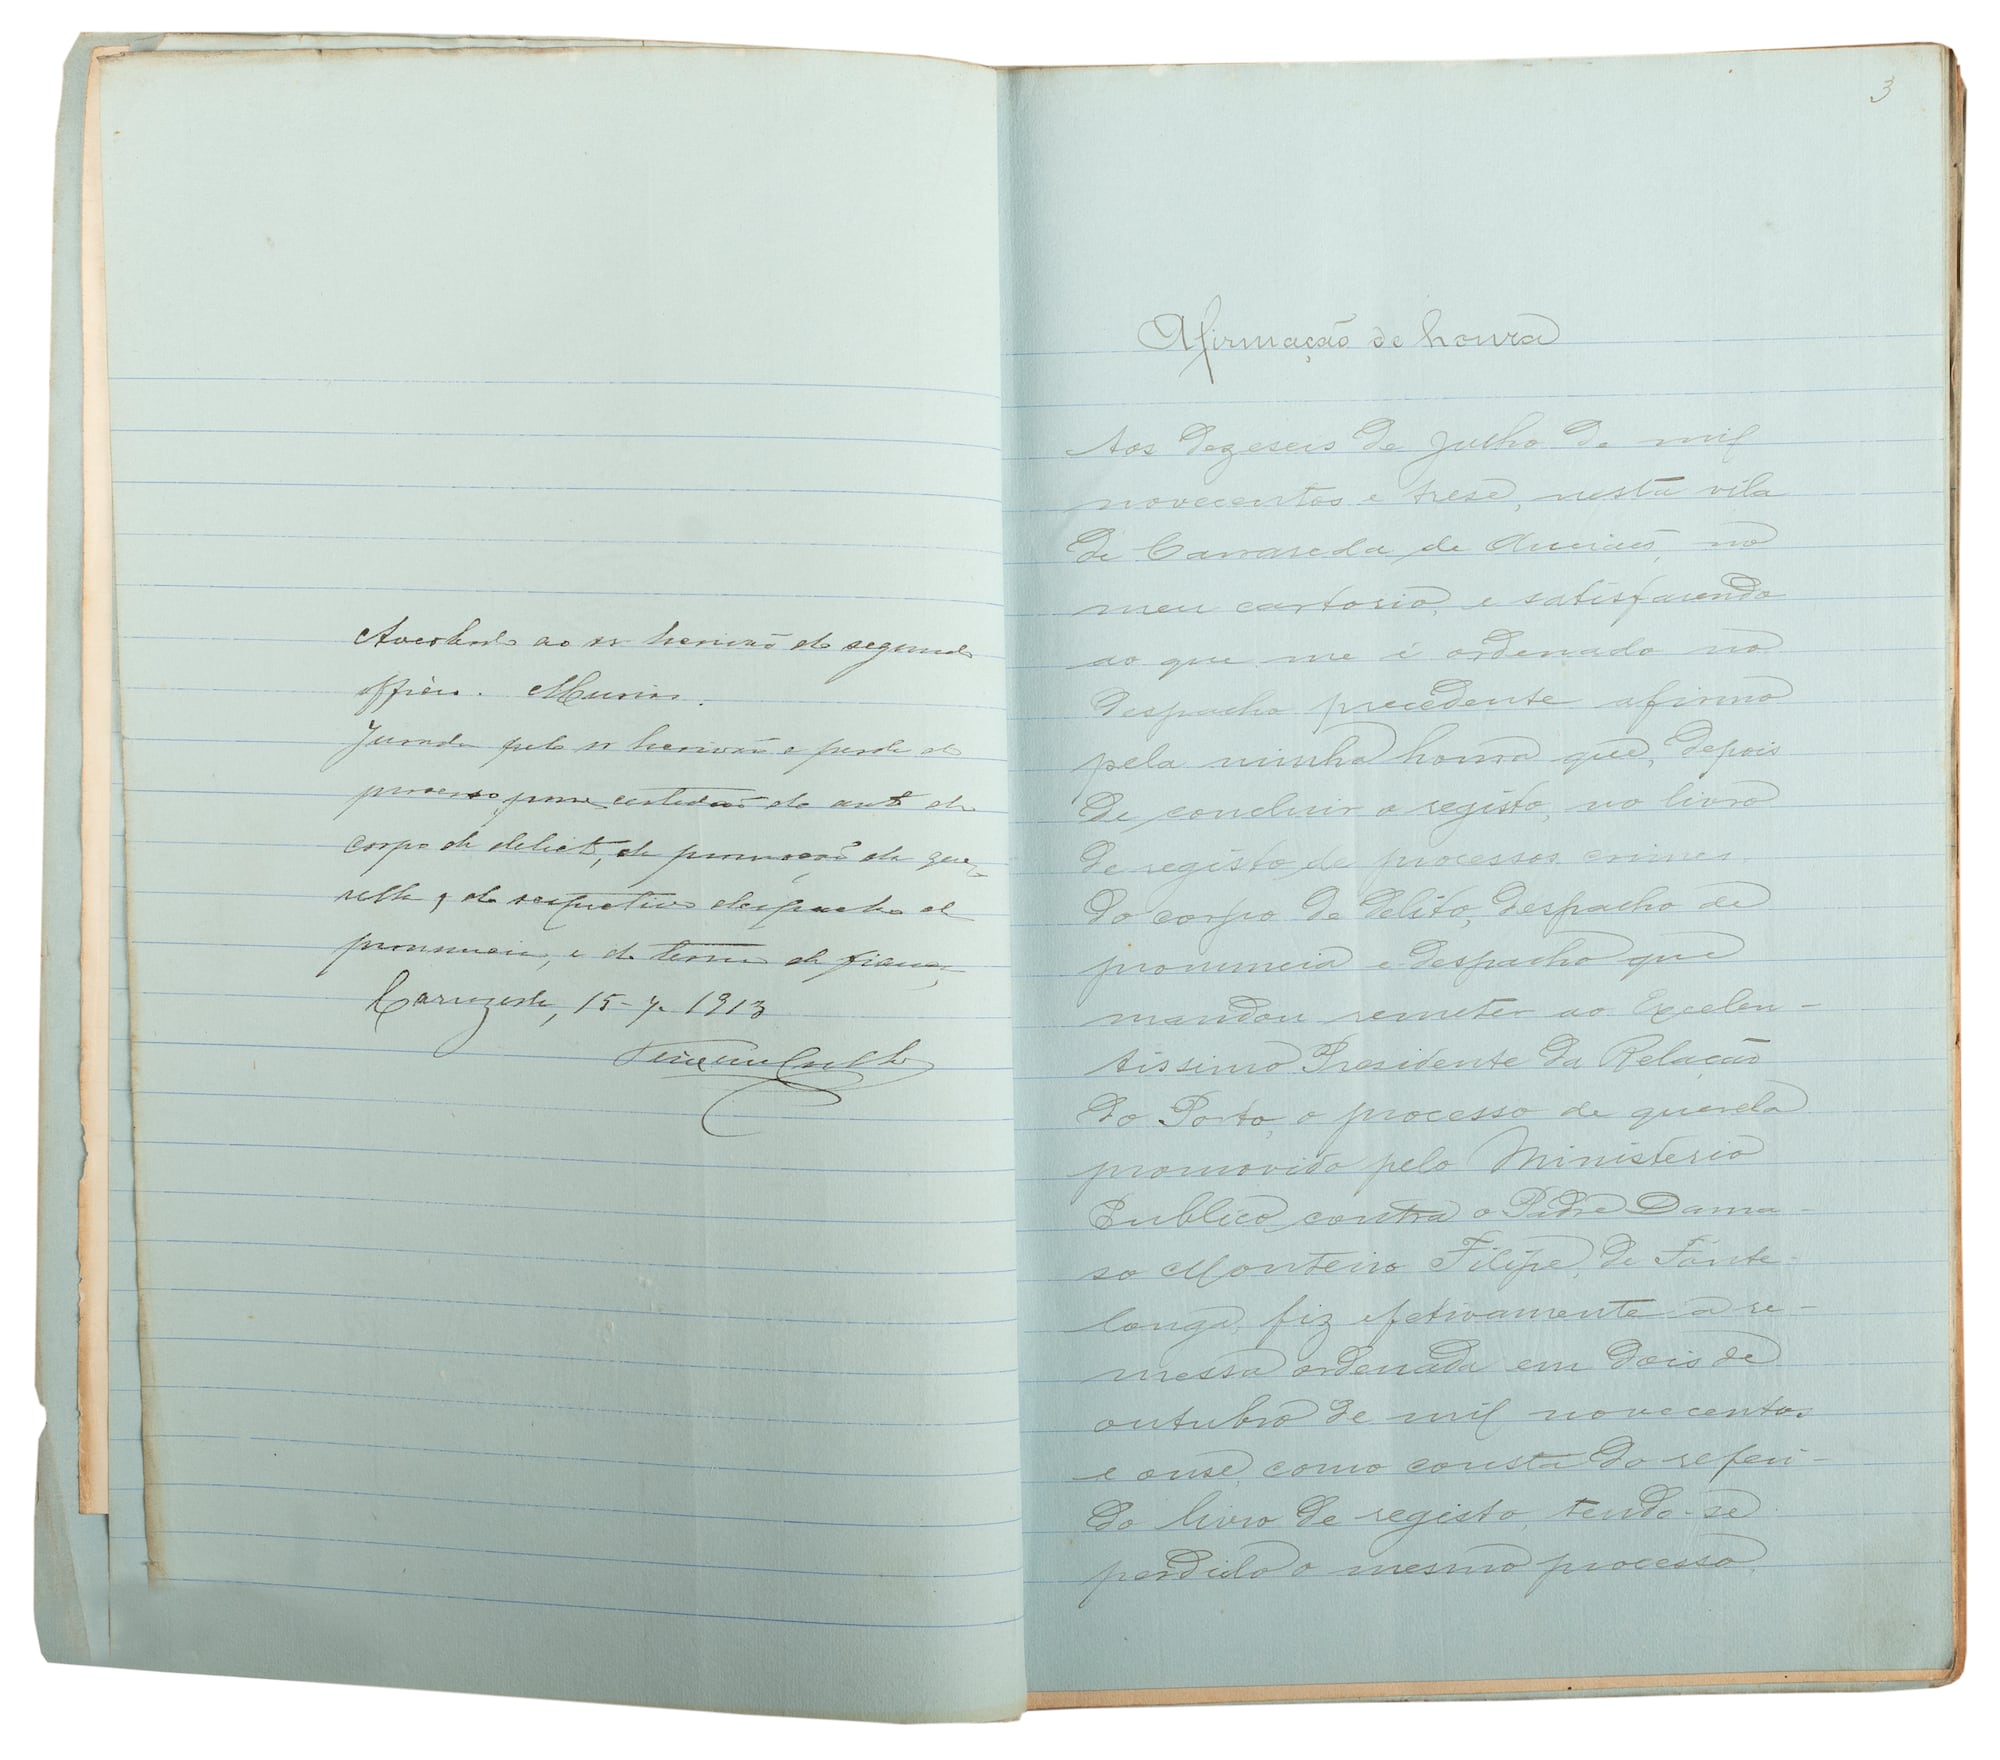 Averbado ao sr. Escrivão do segundo
officio.
Jurada pelo sr Escrivão a perda do
processo, passe certidão do auto de
corpo de delicto, da promoção da que-
rella, e do respectivo despacho de
pronuncia, e do termo de fiança,
Carrazeda, 15-7-1913
3
Afirmação de honra
Aos dezeseis de Julho de mil
novecentos e trese, nesta vila
de Carraseda de Anciaes, no
meu cartorio, e satisfasendo
ao que me é ordenado no
despacho precedente afirmo
pela minha honra que, depois
de concluir o registo, no livro
de registo de processos crimes
do corpo de delito, despacho de
pronuncia e despacho que
mandou remeter ao Excelen-
tissimo Presidente da Relação
do Porto, o processo de querela
promovido pelo Ministerio
Publico contra o Padre Dama-
so Monteiro Filipe, de Fonte-
longa, fiz efetivamente a re-
messa ordenada em dois de
outubro de mil novecentos
e onse, como consta do referi-
do livro de registo, tendo-se
perdido o mesmo processo,